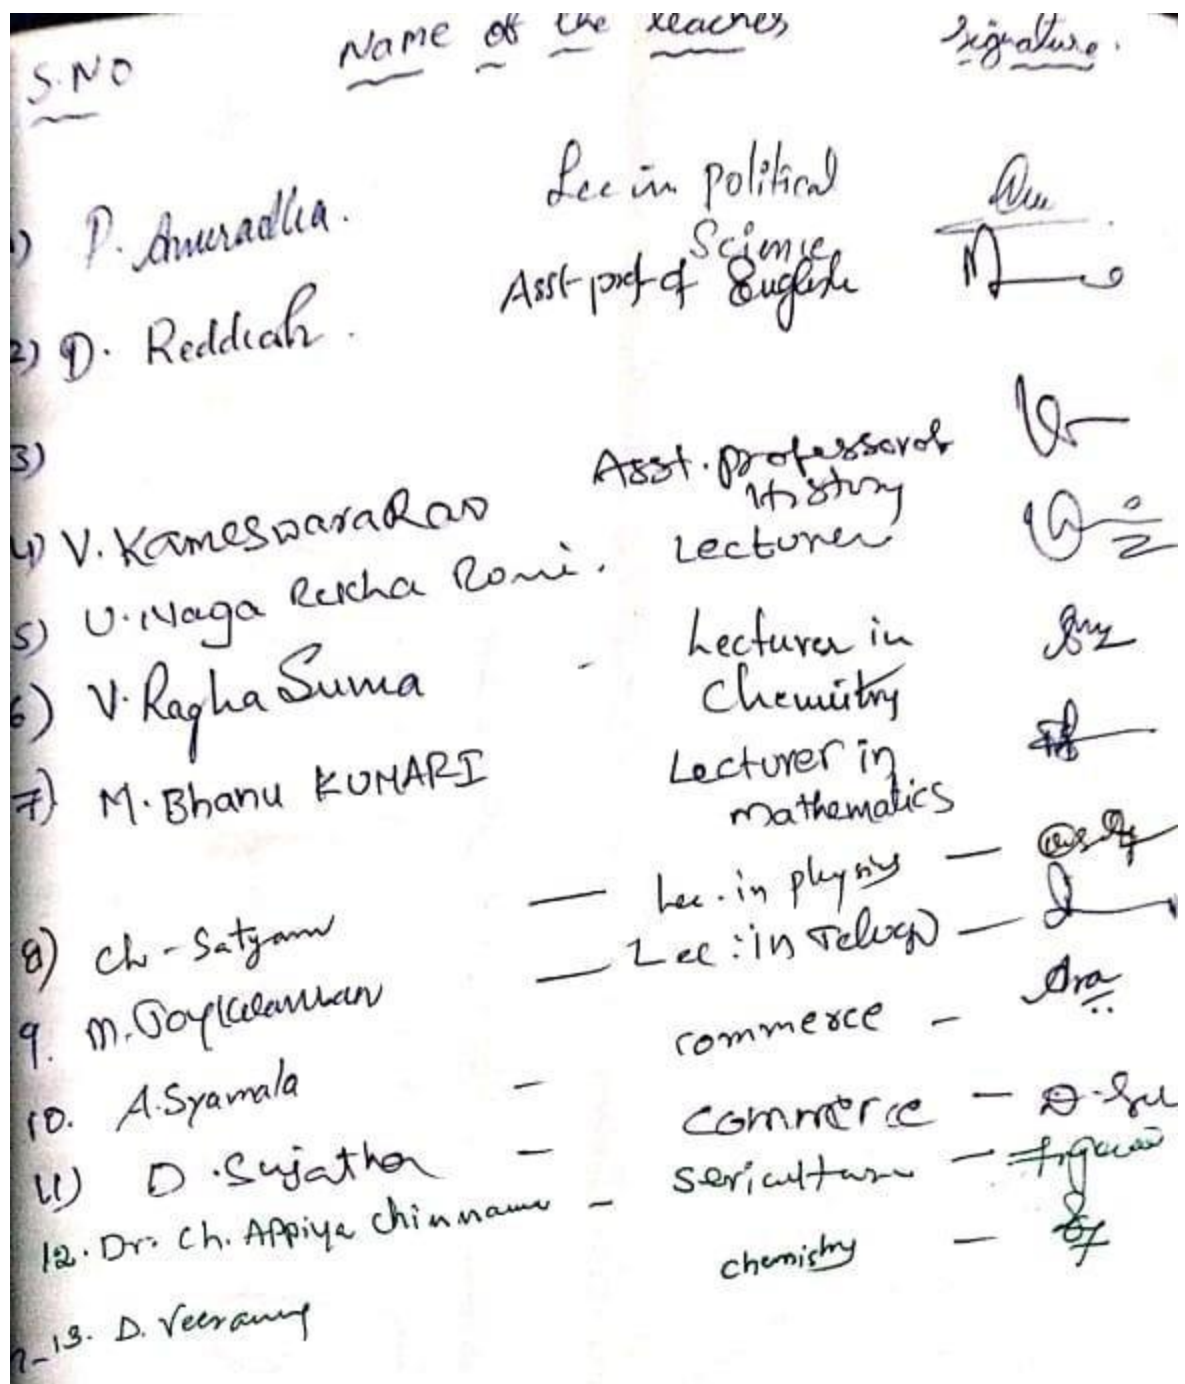 S.NO Name of the teacher Signature.
1) P. Anuradha. Lec in political
Science
2) D. Reddiah. Asst prof of English
3)
4) V. Kameswara Rao Asst. professor of
History
5) U. Naga Rekha Rani. Lecturer
6) V. Ragha Suma - Lecturer in
Chemistry
7) M. Bhanu KUMARI Lecturer in
mathematics
8) Ch - Satyam — Lec. in physics —
9. M. — Lec: in Telugu —
10. A. Syamala — commerce —
11) D. Sujatha — commerce — D.
12. Dr. Ch. Appiya chinnamma — sericulture —
13. D. chemistry —